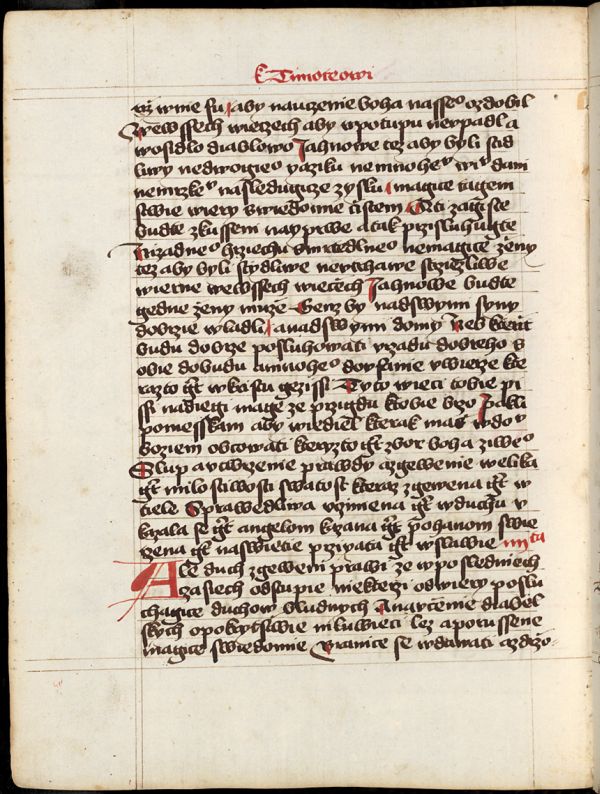 K Timoteowi
wy wnie su / aby nauczenie boha nasseo ozdobil
wewssech wieczech aby wpotupu neupadl a
wosidlo diablowo Jahnowe tez aby byli stid
liwy nedwogieo yaziku nemnoheu winu dani
nemrzkeo nasledugicze zysku magice tagem
stwie wiery swiedomie cistem A ti zagiste
budte zkusseni nayprwe a tak przisluhugte
nizadneo hrziechu smrtedlneo nemagice ženy
tez aby byli stydliwe neutrhawe strziezliwe
wierne wewssech wiecech Jahnowe budte
gedne ženy muze Genz by nadswymi syny
dobrzie wladli / a nadswymi domy Neb kterit
budu dobrze posluhowati vrzadu dobreho s
obie dobudu a mnoheo dowfanie vwierze kte
razto gt wkristu gezissi Tyto wieci tobie pi
ssi nadiegi mage ze przigdu ktobie brzo Pakli
pomesskam aby wiediel kterak mass wdou
boziem obcowati kteryzto gt zbor boha ziweo
Slup a vtwrzenie prawdy a zgewenie welika
gt milostiwosti swatost kteraz zgewena gt w
tiele Sprawedliwa vczinena gt wduchu v
kazala se gt angelom kazana gt pohanom swie
rzena gt naswietie przigata gt wslawie iiii ta
Ale duch zgewenie prawi ze wposledniech
czasiech odstupie niekterzi odwiery poslu
chagice duchow bludnych A nauczenie diabel
skych opokrytstwie mluwieci lez a porussene
magice swiedomie Branice se wdawati a zdrzo-